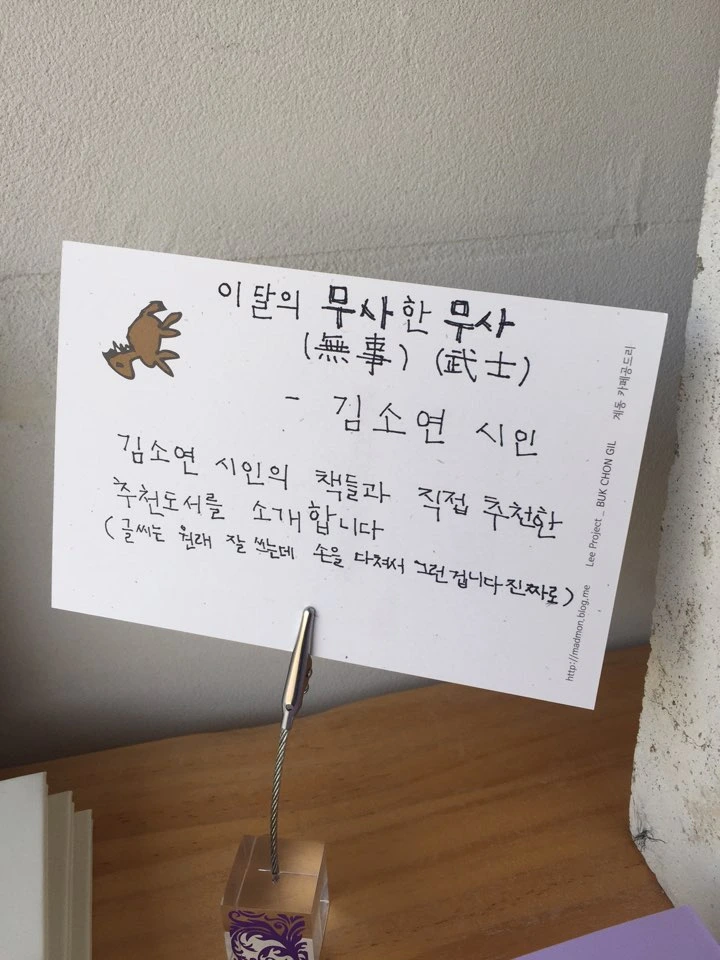 이달의 무사한 무사
(無事) (武士)
- 김소연 시인
김소연 시인의 책들과 직접 추천한
추천도서를 소개합니다
(글씨는 원래 잘 쓰는데 손을 다쳐서 그런겁니다 진짜로)
http://madmon.blog.me Lee Project _ BUK CHON GIL 계동 카페공드리